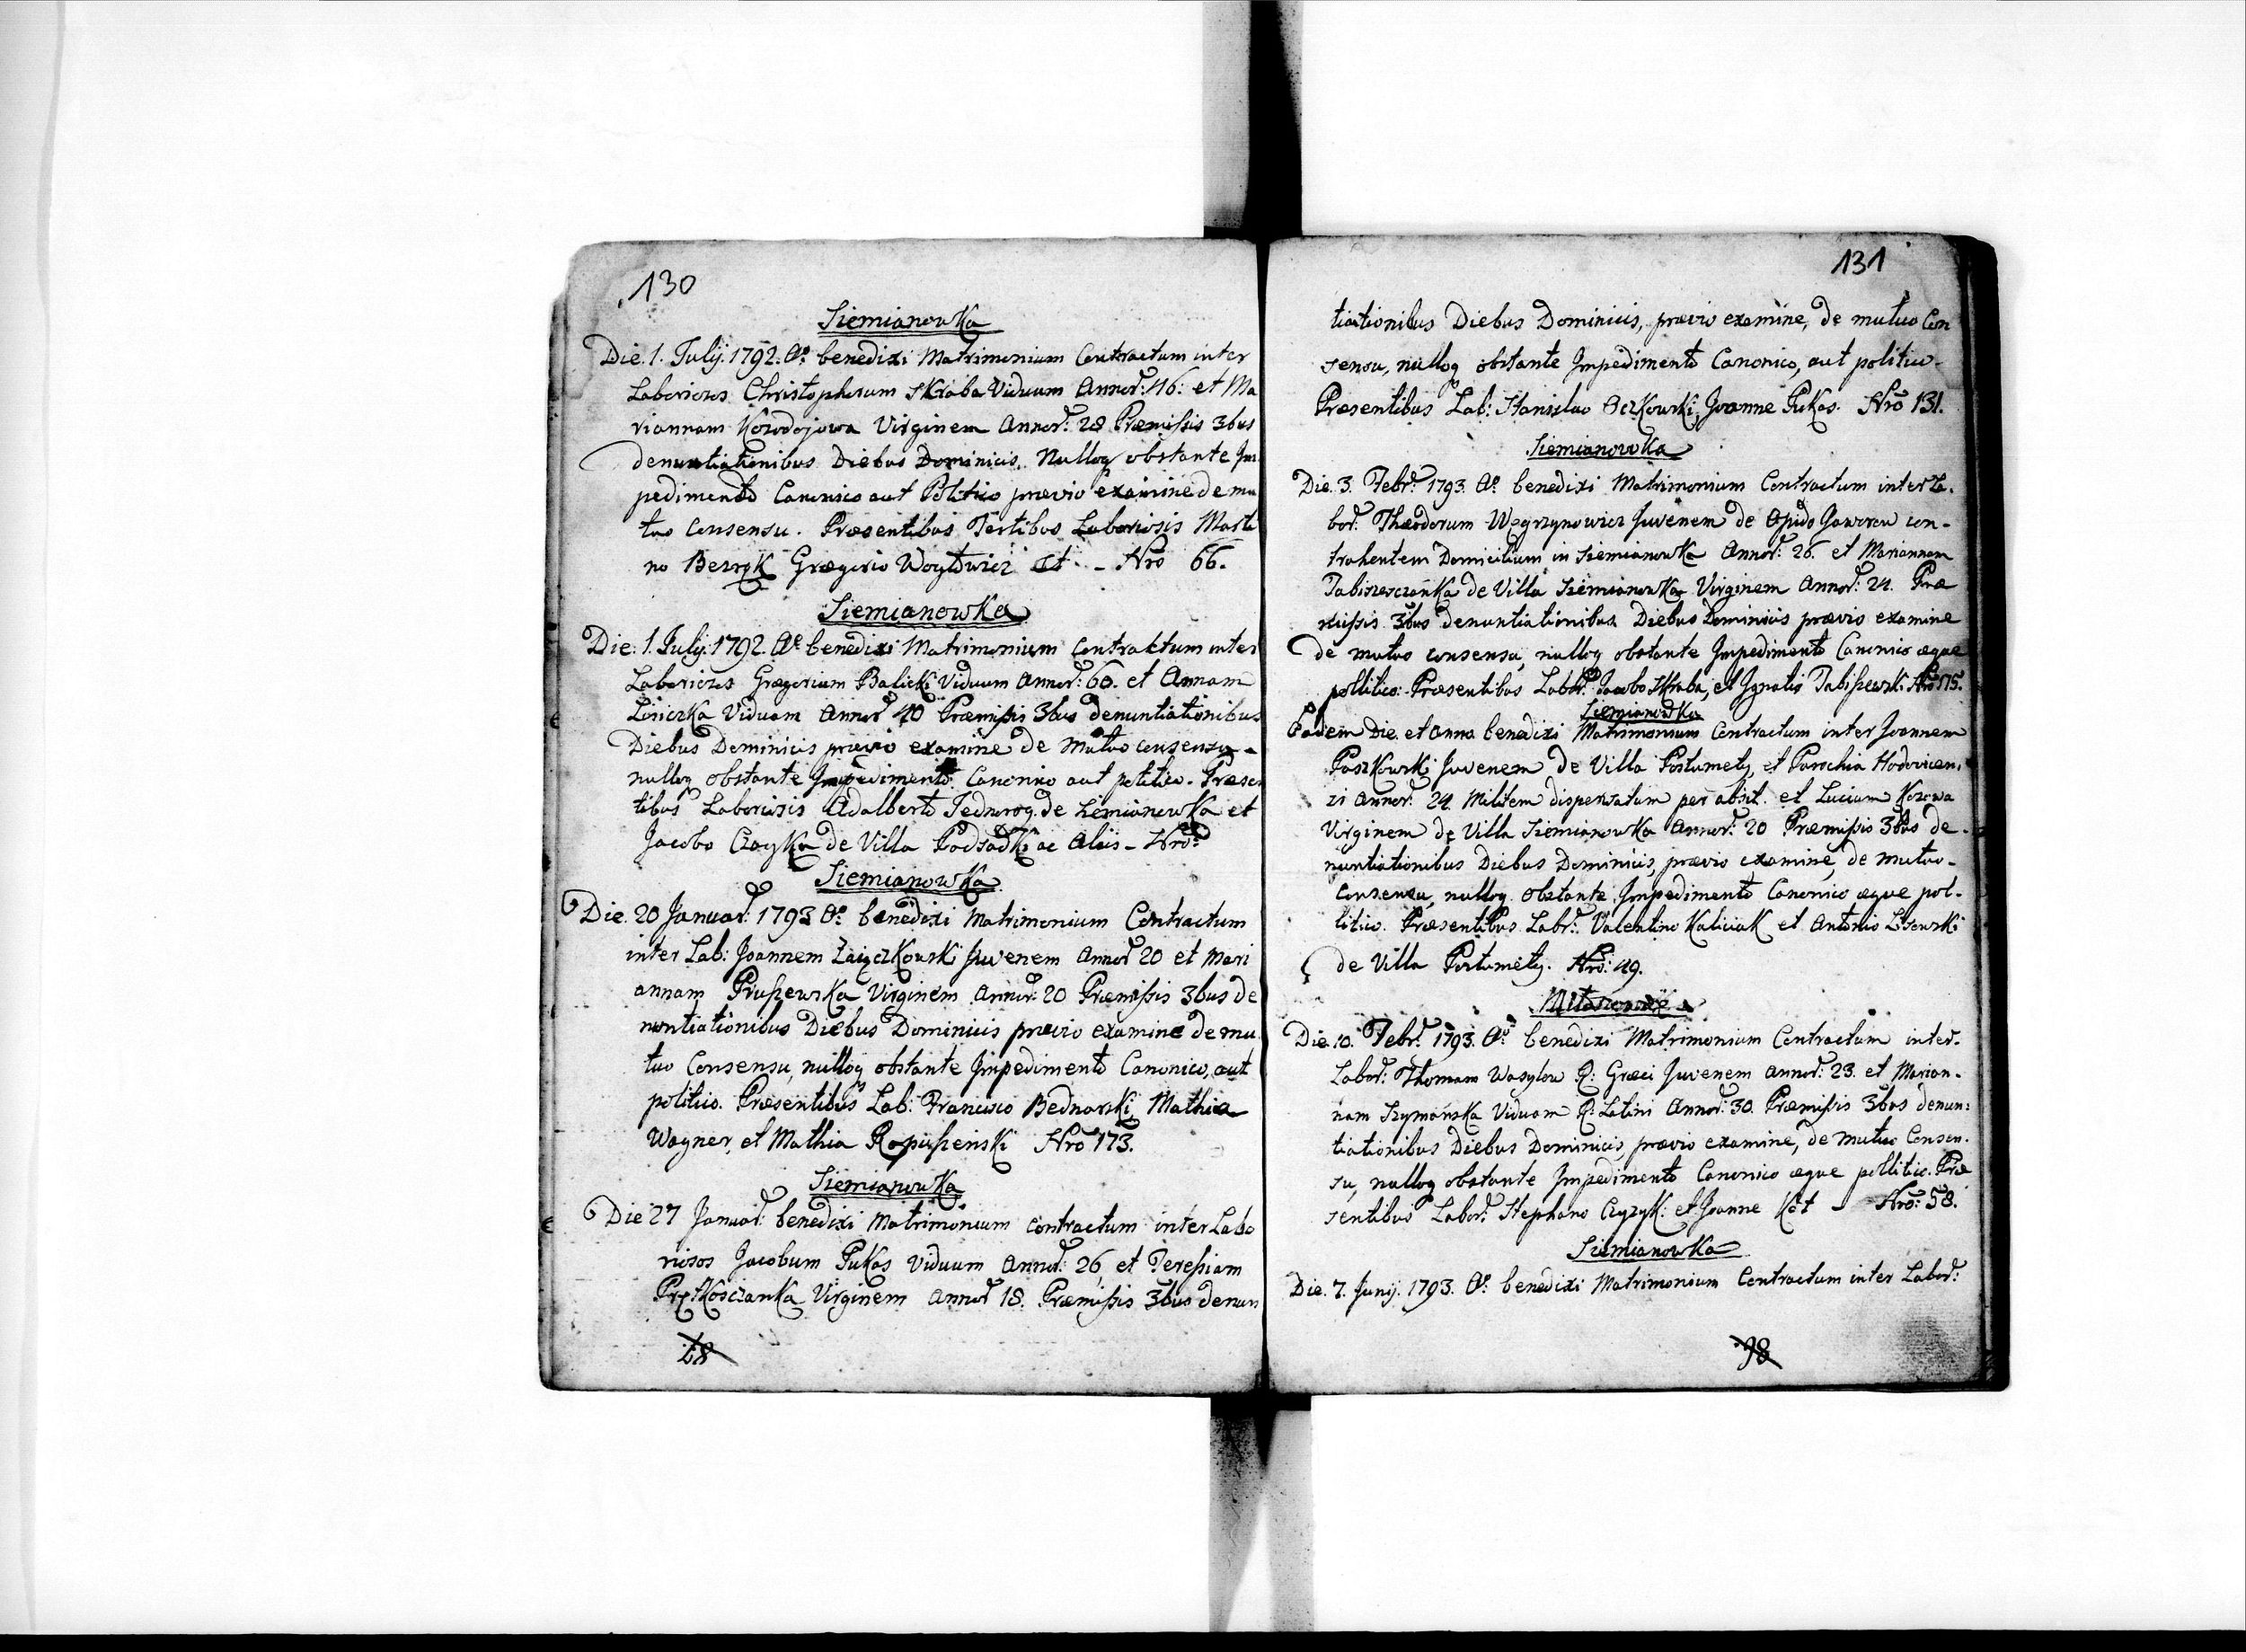 130
Siemianowka
Die. 1. July. 1792. Ao: benedixi Matrimonium Contractum inter
Laboriozos Christophorum Skraba Viduum Annor: 46: et Ma
riannam Kozodojowa Virginem Annor: 28 Præmissis 3bus
denuntiationibus Diebus Dominicis. Nulloq obstante Im
pedimento Canonico aut Politico prævio examine de mu
tuo consensu. Præsentibus Testibus Laboriosis Marti
no Bezryk Grægorio Woytowicz et - Nro 66.
Siemianowka
Die. 1. July. 1792. Ao benedixi Matrimonium Contraktum inter
Laboriozos Grægorium Balicki Viduum Annor: 60. et Annam
Liniczka Viduam Annor 40 Præmissis 3bus denuntiationibus
Diebus Dominicis prævio examine de Mutuo consensu -
nulloq obstante Impedimento Canonico aut politico. Præsen
tibus Laboriosis Adalberto Jednorog. de Ziemianowka et
Jacobo Czayka de Villa Podsadki ac Aliis - Nro:
Siemianowka
Die. 20 Januar: 1793 Ao: benedixi Matrimonium Contractum
inter Lab: Joannem Zaiączkowski Juvenem Annor 20 et Mari
annam Pruszewska Virginem Annor: 20 Præmissis 3bus de
nuntiationibus Diebus Dominicis prævio examine de mu
tuo Consensu, nulloq obstante Impedimento Canonico, aut
politico. Præsentibus Lab: Francisco Bednarski, Mathia
Wagner, et Mathia Ropuszeński Nro 173.
Siemianowka
Die 27 Januar: benedixi Matrimonium contractum inter Labo
riosos Jacobum Pukas Viduum Annor: 26 et Teressiam
Virginem Annor 18. Præmissis 3bus denun
131
tiationibus Diebus Dominicis, prævio examine, de mutuo Con
sensu, nulloq obstante Impedimento Canonico, aut politico -
Præsentibus Lab: Stanislao Oczkowski, Joanne Pukas. Nro 131.
Siemianowka
Die. 3. Febr: 1793. Ao benedixi Matrimonium Contractum inter La.
bor: Theodorum Węgrzynowicz Juvenem de Opido Jaworow con-
trahentem Domicilium in Siemianowka Annor: 26. et Mariannam
Tabiszewczanka de Villa Siemianowka Virginem Annor: 24. Præ
missis 3bus denuntiationibus Diebus Dominicis prævio examine
de mutuo consensu, nulloq obstante Impedimento Canonico æque
pollitico. Præsentibus Labor: Jacobo Skraba, et Ignatio Tabiszewski Nro 175.
Siemianowka
Eadem Die. et Anno. benedixi Matrimonium Contractum inter Joannem
Paszkowski Juvenem de Villa Postumety, et Parochia Hodovicen:
zi Annor: 24. Militem dispensatum per absit. et Luciam Kozowa
Virginem de Villa Siemianowka Annor: 20 Præmissis 3bus de-
nuntiationibus Diebus Dominicis, prævio examine, de mutuo-
consensu, nulloq. obstante Impedimento Canonico æque pol-
litico. Præsentibus Labr: Valentino Kaliciak et Antonio Lisowski
de Villa Postumety. Nro: 49.
Die. 10. Febr: 1793. Ao benedixi Matrimonium Contractum inter-
Labor: Thomam Wasylow R: Græci Juvenem annor: 23. et Marian-
nam Szymańska Viduam R: Latini Annor: 30. Præmissis 3bus denun:
tiationibus Diebus Dominicis, prævio examine, de Mutuo Consen-
su, nulloq obstante Impedimento Canonico æque pollitico. Præ
sentibus Labor: Stephano Czyzyk: et Joanne Kot - Nro: 58.
Siemianowka
Die. 7. Junij. 1793. Ao: benedixi Matrimonium Contractum inter Labor:
98